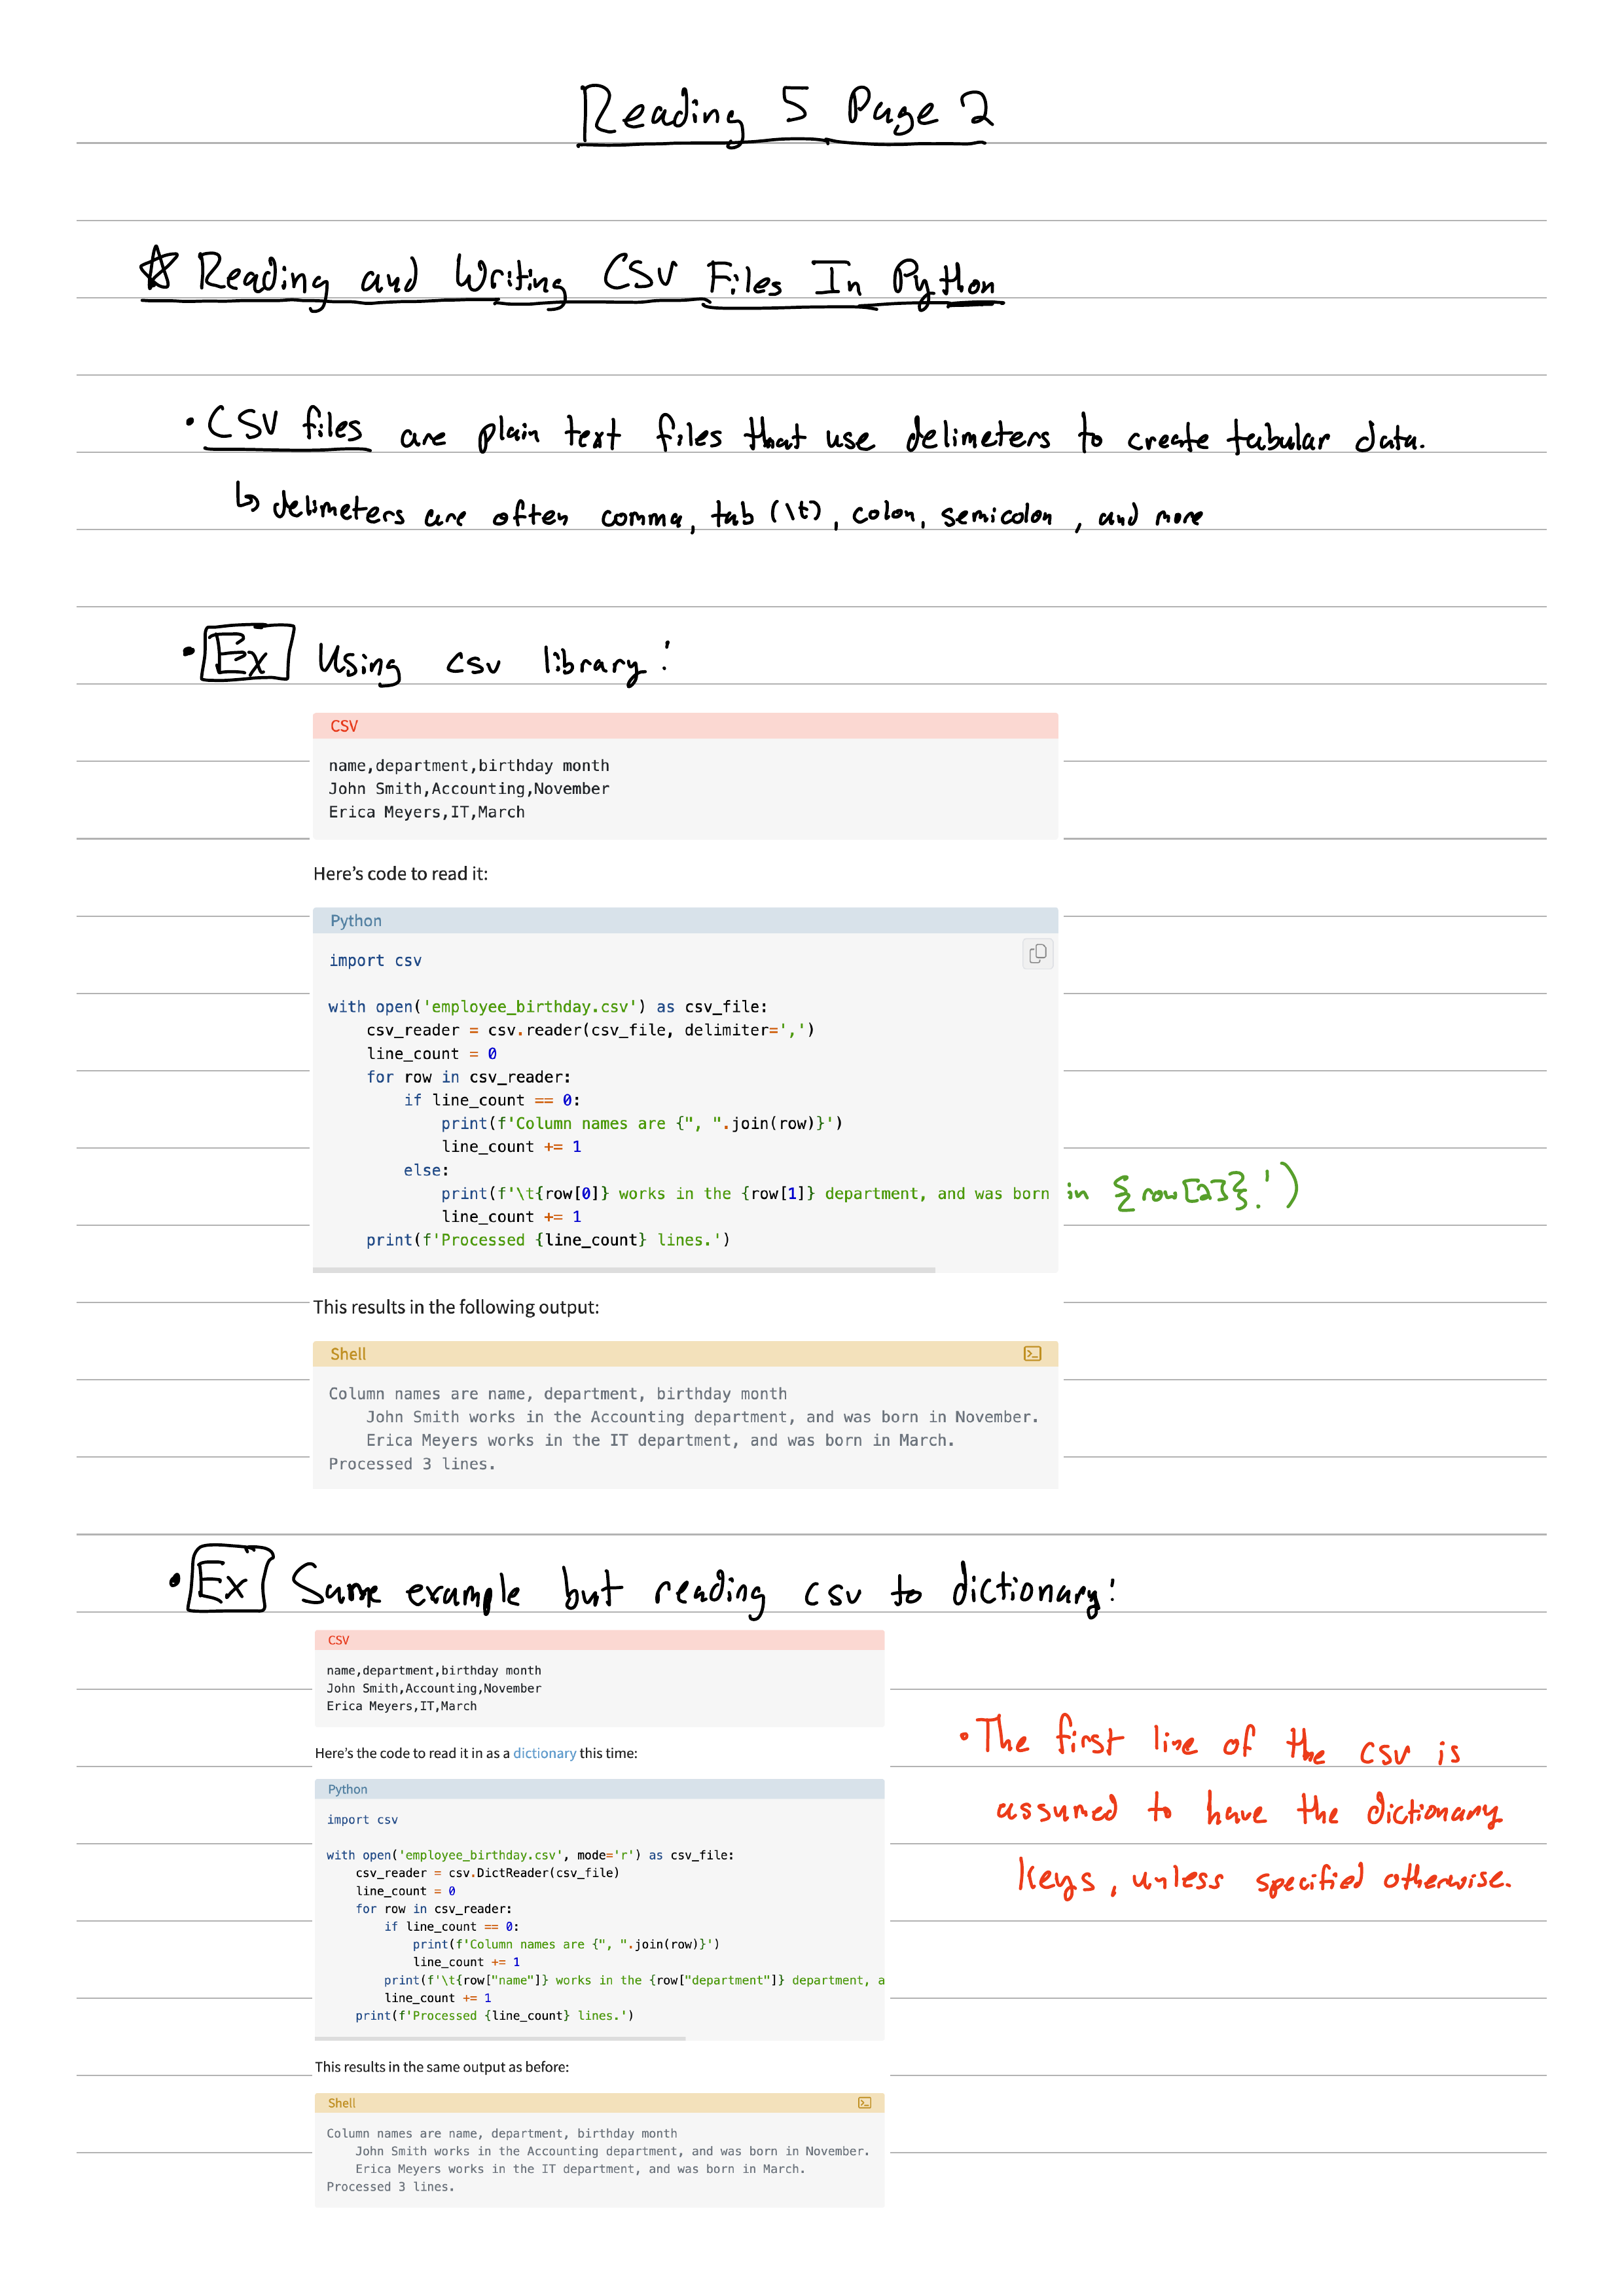 Reading 5 Page 2
☆ Reading and Writing CSV Files In Python
• CSV files are plain text files that use delimeters to create tabular data.
↳ delimeters are often comma, tab (\t), colon, semicolon, and more
• Ex Using csv library:
CSV
name,department,birthday month
John Smith,Accounting,November
Erica Meyers,IT,March
Here's code to read it:
Python
import csv
with open('employee_birthday.csv') as csv_file:
    csv_reader = csv.reader(csv_file, delimiter=',')
    line_count = 0
    for row in csv_reader:
        if line_count == 0:
            print(f'Column names are {", ".join(row)}')
            line_count += 1
        else:
            print(f'\t{row[0]} works in the {row[1]} department, and was born in {row[2]}.')
            line_count += 1
    print(f'Processed {line_count} lines.')
This results in the following output:
Shell
Column names are name, department, birthday month
    John Smith works in the Accounting department, and was born in November.
    Erica Meyers works in the IT department, and was born in March.
Processed 3 lines.
• Ex Same example but reading csv to dictionary:
CSV
name,department,birthday month
John Smith,Accounting,November
Erica Meyers,IT,March
Here's the code to read it in as a dictionary this time:
Python
import csv
with open('employee_birthday.csv', mode='r') as csv_file:
    csv_reader = csv.DictReader(csv_file)
    line_count = 0
    for row in csv_reader:
        if line_count == 0:
            print(f'Column names are {", ".join(row)}')
            line_count += 1
        print(f'\t{row["name"]} works in the {row["department"]} department, a
        line_count += 1
    print(f'Processed {line_count} lines.')
This results in the same output as before:
Shell
Column names are name, department, birthday month
    John Smith works in the Accounting department, and was born in November.
    Erica Meyers works in the IT department, and was born in March.
Processed 3 lines.
• The first line of the csv is
assumed to have the dictionary
keys, unless specified otherwise.